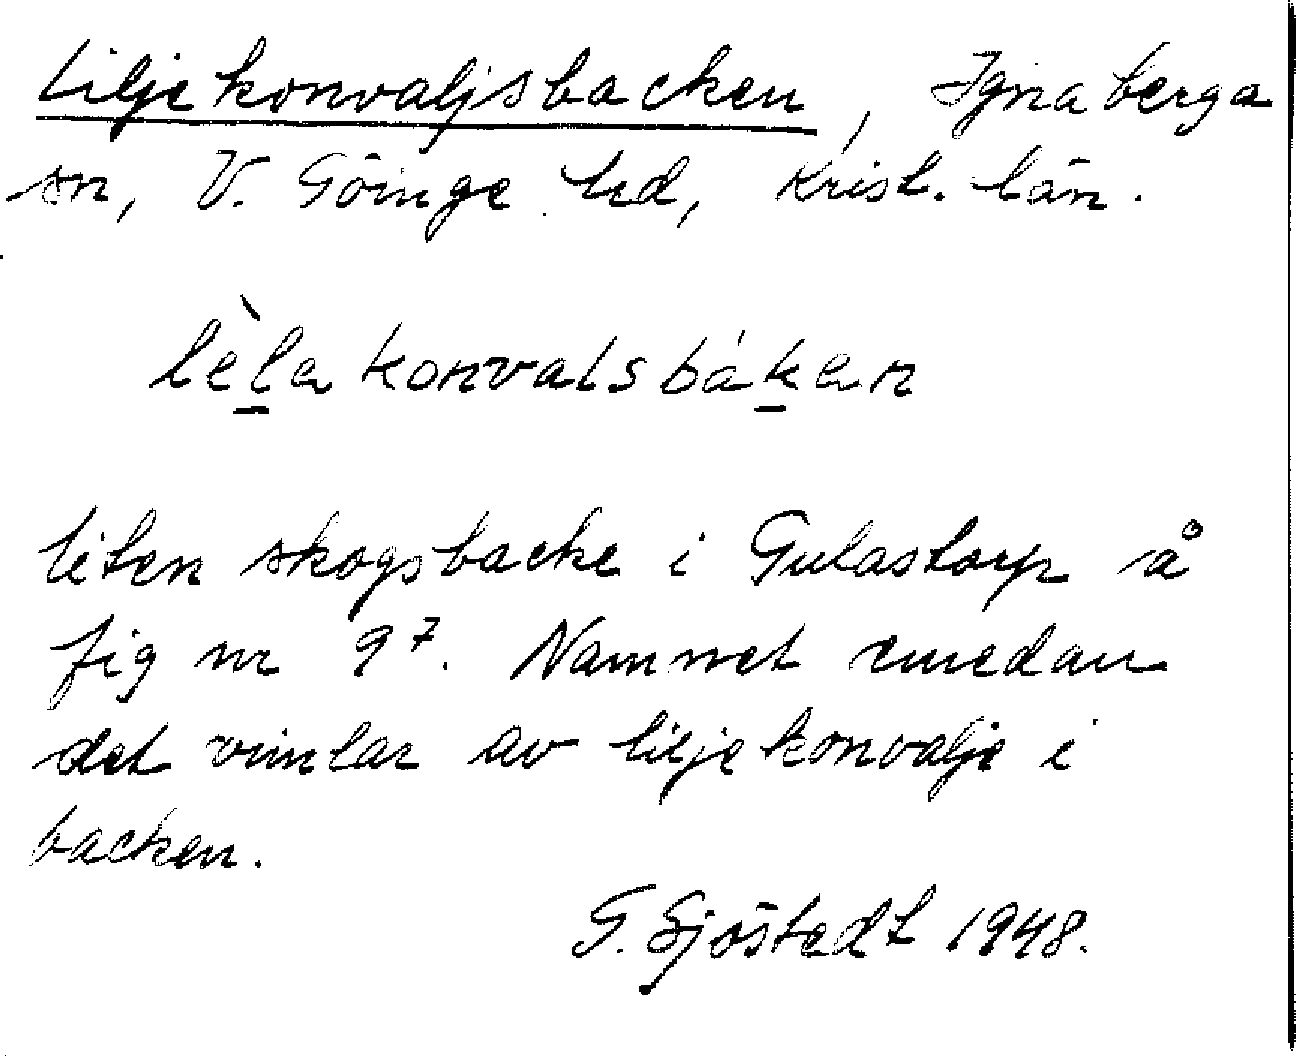 Liljekonvaljsbacken, Ignaberga
sn, V. Göinge hd, Krist. län.
lèl̲akonvalsbák̲an
liten skogsbacke i Gulastorp å
fig nr 9⁷. Namnet emedan
det vimlar av liljekonvalje i
backen.
G. Sjöstedt 1948.